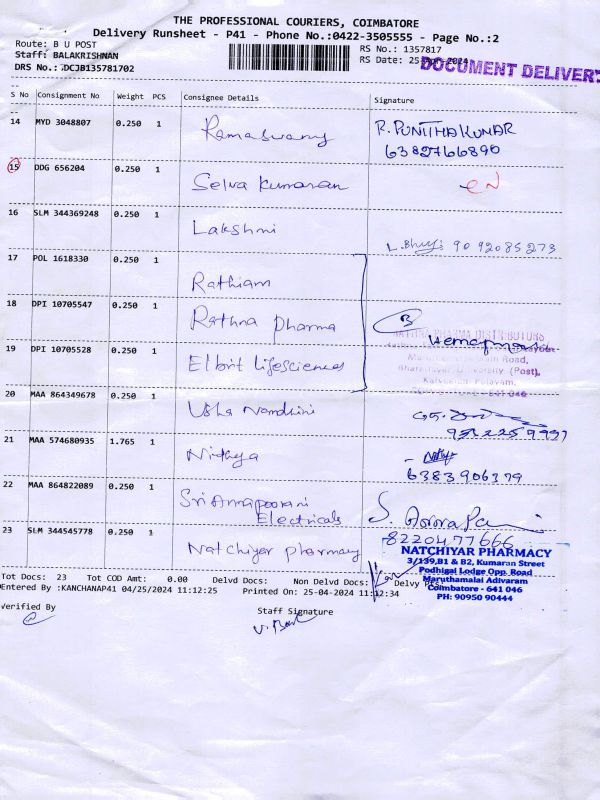 THE PROFESSIONAL COURIERS, COIMBATORE
Delivery Runsheet - P41 - Phone No.:0422-3505555 - Page No.:2
Route: B U POST
RS No.: 1357817
Staff: BALAKRISHNAN
RS Date: 25-Apr-2024
DRS No.: DCJB135781702
DOCUMENT DELIVERY
S No Consignment No Weight PCS Consignee Details Signature
14 MYD 3048807 0.250 1 Ramaswamy R. PUNITHAKUMAR
6382766890
15 DDG 656204 0.250 1 Selva Kumaran
16 SLM 344369248 0.250 1 Lakshmi 9092085273
17 POL 1618330 0.250 1 Rathiam
18 DPI 10705547 0.250 1 Rathna Pharma
RATHNA PHARMA DISTRIBUTORS
19 DPI 10705528 0.250 1 Elbrit Lifesciences
Bharathiar University (Post),
20 MAA 864349678 0.250 1 Usha Nandhini
21 MAA 574680935 1.765 1 Nithya
6383906179
22 MAA 864822089 0.250 1 Sri Annapoorani
Electricals
8220477666
23 SLM 344545778 0.250 1 Natchiyar pharmacy
NATCHIYAR PHARMACY
3/139,B1 & B2, Kumaran Street
Podhigai Lodge Opp. Road
Maruthamalai Adivaram
Coimbatore - 641 046
PH: 90950 90444
Tot Docs: 23 Tot COD Amt: 0.00 Delvd Docs: Non Delvd Docs: Delvy Pts:
Entered By :KANCHANAP41 04/25/2024 11:12:25 Printed On: 25-04-2024 11:12:34
Verified By Staff Signature